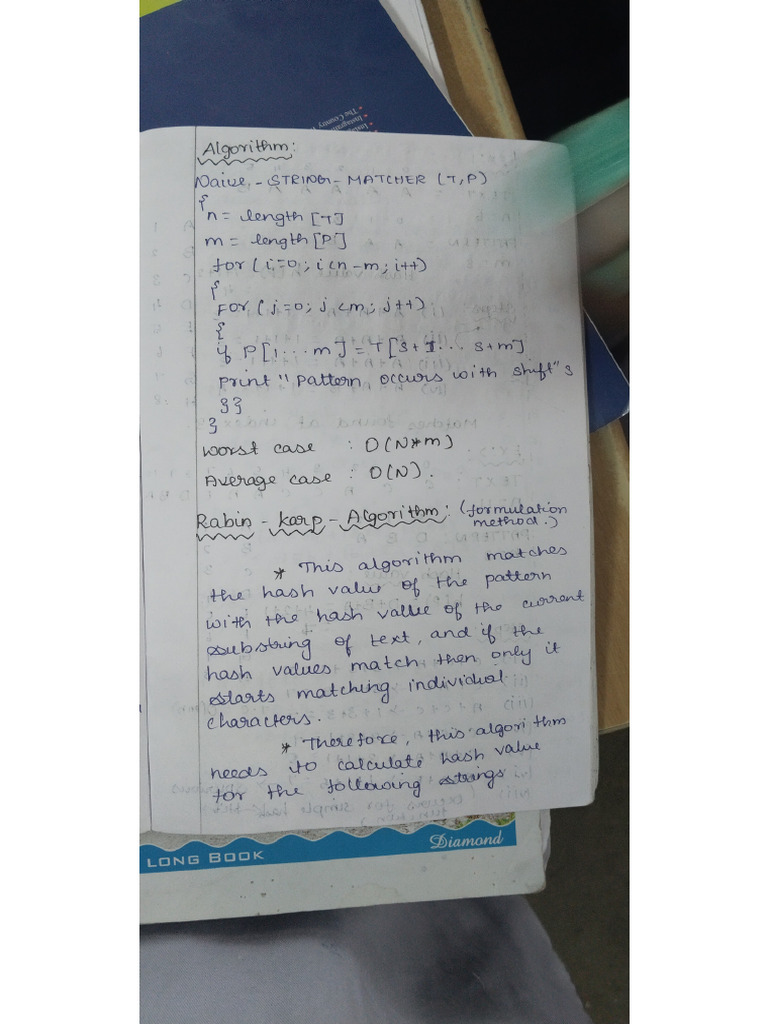 Algorithm:
Naive - STRING - MATCHER (T,P)
{
n = length [T]
m = length [P]
for (i=0; i<n-m; i++)
{
For (j=0; j<m; j++)
{
if P[1...m] = T[S+1...S+m]
print "pattern occurs with shift" s
}}
}
Worst case : O(N*m)
Average case : O(N).
Rabin - karp - Algorithm: (formulation
method.)
* This algorithm matches
the hash value of the pattern
with the hash value of the current
substring of text, and if the
hash values match then only it
starts matching individual
characters.
* Therefore, this algorithm
needs to calculate hash value
for the following strings
LONG BOOK
Diamond